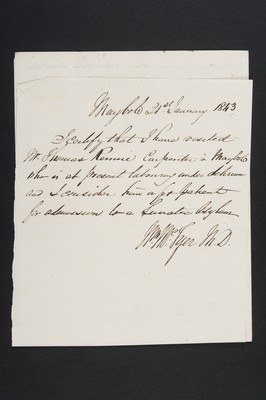 Maybole 21st January 1843
I certify that I have visited
Mr Thomas Rennie Carpenter in Maybole
who is at present labouring under delirium
and I consider him a fit patient
for admission to a Lunatic Asylum
Wm McTyer M.D.